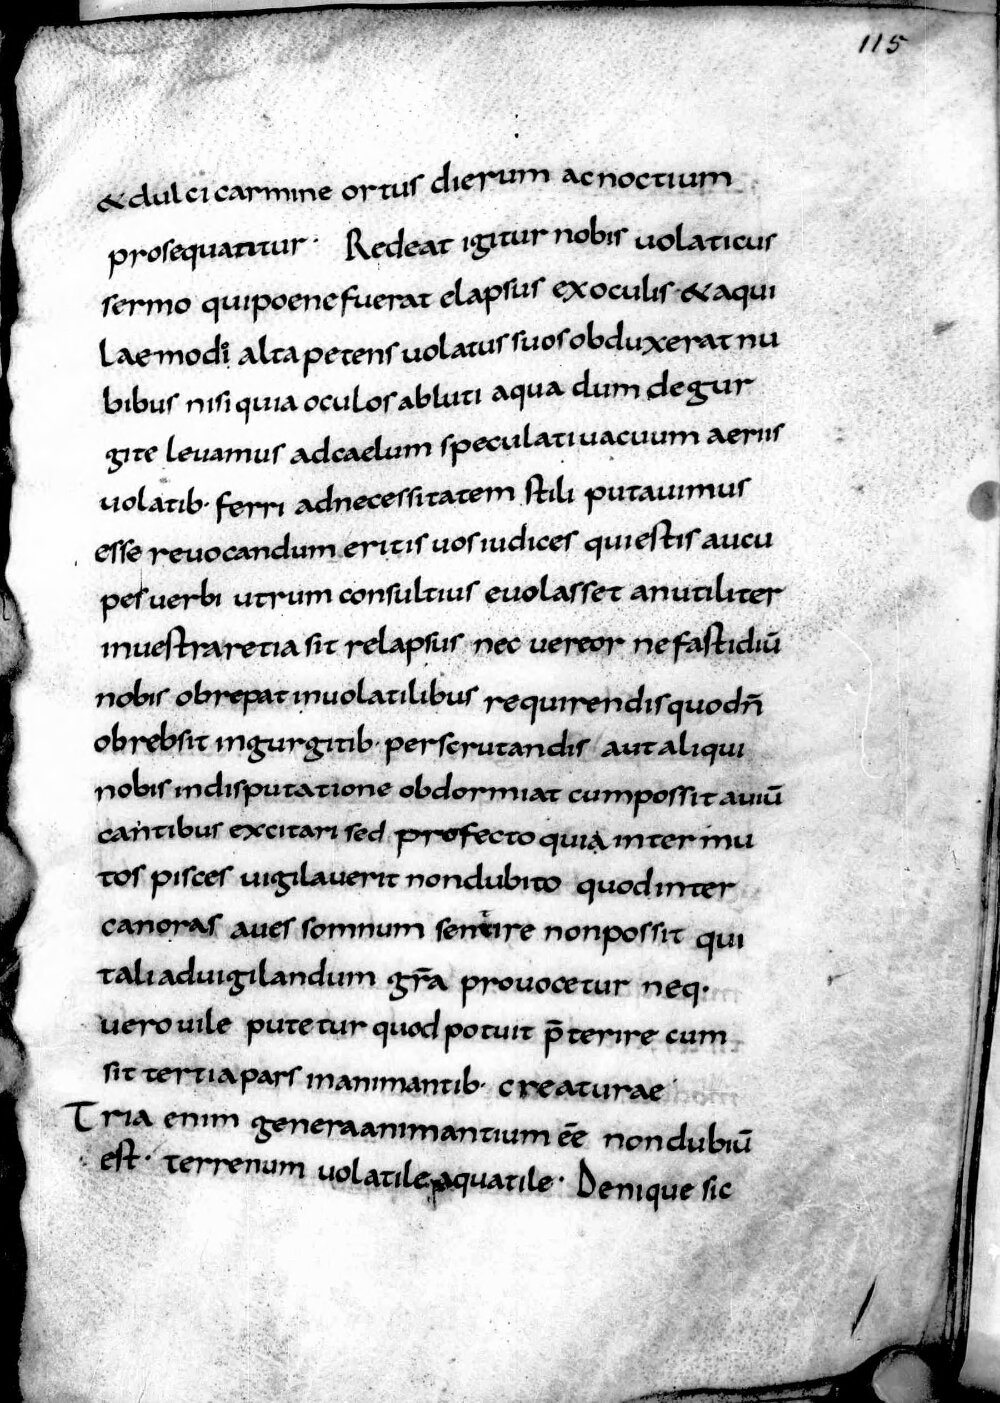 115
& dulci carmine ortus dierum ac noctium
prosequatitur· Redeat igitur nobis uolaticus
sermo qui poene fuerat elapsus ex oculis· & aqui
lae modi alta petens uolatus suos obduxerat nu
bibus nisi quia oculos abluti aqua dum de gur
gite leuamus ad caelum speculati uacuum aeriis
uolatib· ferri ad necessitatem stili putauimus
esse reuocandum eritis uos iudices qui estis aucu
pes uerbi utrum consultius euolasset an utiliter
in uestra retia sit relapsus nec uereor ne fastidiū
nobis obrepat in uolatilibus requirendis quod n̄
obrebsit in gurgitib· perscrutandis aut aliqui
nobis in disputatione obdormiat cum possit auiū
cantibus excitari sed profecto quia inter mu
tos pisces uigilauerit non dubito quod inter
canoras aues somnum sentire non possit qui
tali ad uigilandum gr̄a prouocetur neq·
uero uile putetur quod potuit p̄terire cum
sit tertia pars in animantib· creaturae
Tria enim genera animantium ēe non dubiū
est· terrenum uolatile aquatile· Denique sic